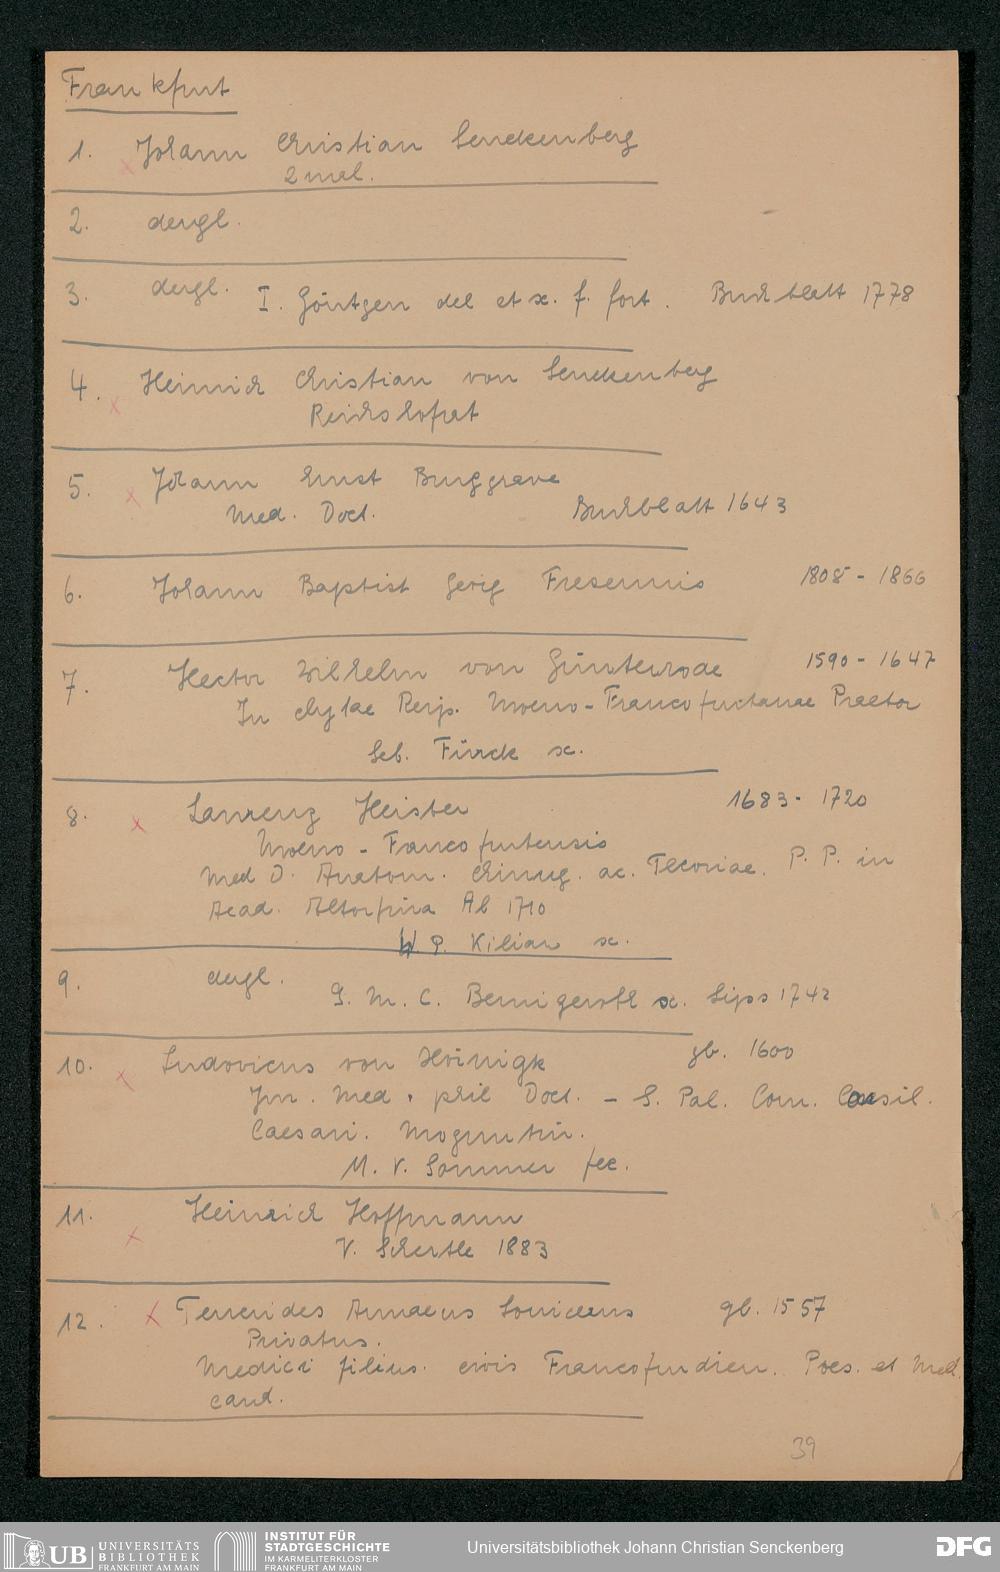 Frankfurt
1. Johann Christian Senckenberg
2 mal.
2. dergl.
3. dergl. I. Göntgen del et sc. f. fort. Buchblatt 1778
4. Heinrich Christian von Senckenberg
Reichshofrat
5. Johann Ernst Burggrave
Med. Doct. Buchblatt 1643
6. Johann Baptist Georg Fresenius 1808 - 1866
7. Hector Wilhelm von Günterrode 1590 - 1647
In clytae Reip. Moeno-Francofurtanae Praetor
Seb. Fürck sc.
8. Laurenz Heister 1683 - 1720
Moeno - Francofurtensis
Med D. Anatom. Chirurg. ac. Theoriae. P. P. in
Acad. Altorfina Ab 1710
W. P. Kilian sc.
9. dergl. G. M. C. Bernigeroth sc. Lips 1742
10. Ludovicus von Hörnigk gb. 1600
Jur. Med. phil Doct. - S. Pal. Com. Consil.
Caesari. Moguntin.
M. V. Sommer fec.
11. Heinrich Hoffmann
V. Schertle 1883
12. Teucrides Annaeus Lonicerus gb. 1557
Privatus.
Medici filius. civis Francofurdien. Poes. et Med.
cand.
39
UB UNIVERSITÄTS
BIBLIOTHEK
FRANKFURT AM MAIN
INSTITUT FÜR
STADTGESCHICHTE
IM KARMELITERKLOSTER
FRANKFURT AM MAIN
Universitätsbibliothek Johann Christian Senckenberg
DFG